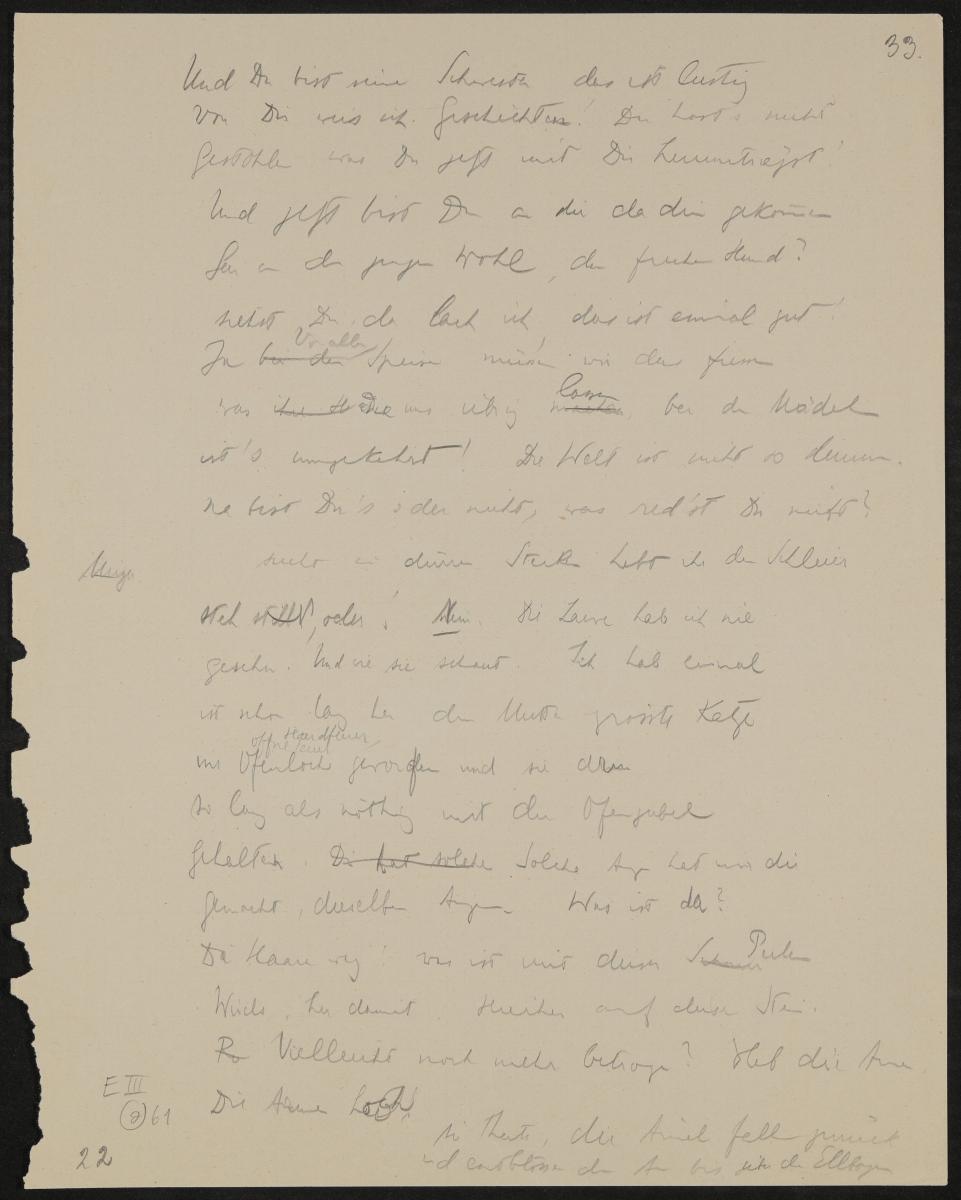 33.
Und Du bist seine Schwester das ist lustig
Von Dir weis ich Geschichten! Du hast's nicht
gestohlen was Du jetzt mit Dir herumträgst!
Und jetzt bist Du an die da den gekommen
den jungen Wohl, den frechen Hund?
siehst Du, da lach ich, das ist einmal gut!
Vor allen
Ja bei den Speisen müssen wir das fressen
was ihre die uns übrig lassen, bei den Mädeln
ist's umgekehrt! Die Welt ist nicht so dumm.
Na bist Du's oder nicht, was red'st Du nicht?
sucht ein dürren Stecken hebt ihr den Schleier
steh still, oder! Nein. Die Larve hab ich nie
gesehn. Und wie sie schaut. Ich hab einmal
ist schon lang her der Mutter grösste Katze
offne Herdfeuer
ins Ofenloch geworfen und sie drin
so lang als nöthig mit der Ofengabel
gehalten. Die hat solche Solche Augen hat uns die
gemacht, dieselben Augen. Was ist da?
Die Haare weg! was ist mit dieser Perlen
her damit. Hierher auf diesen Stein.
Vielleicht noch mehr betrogen? Heb die Arme
Die Arme hoch!
sie thuts, der Ärmel fell zurück
und entblösst den Arm bis über den Ellbogen
E III
61
22